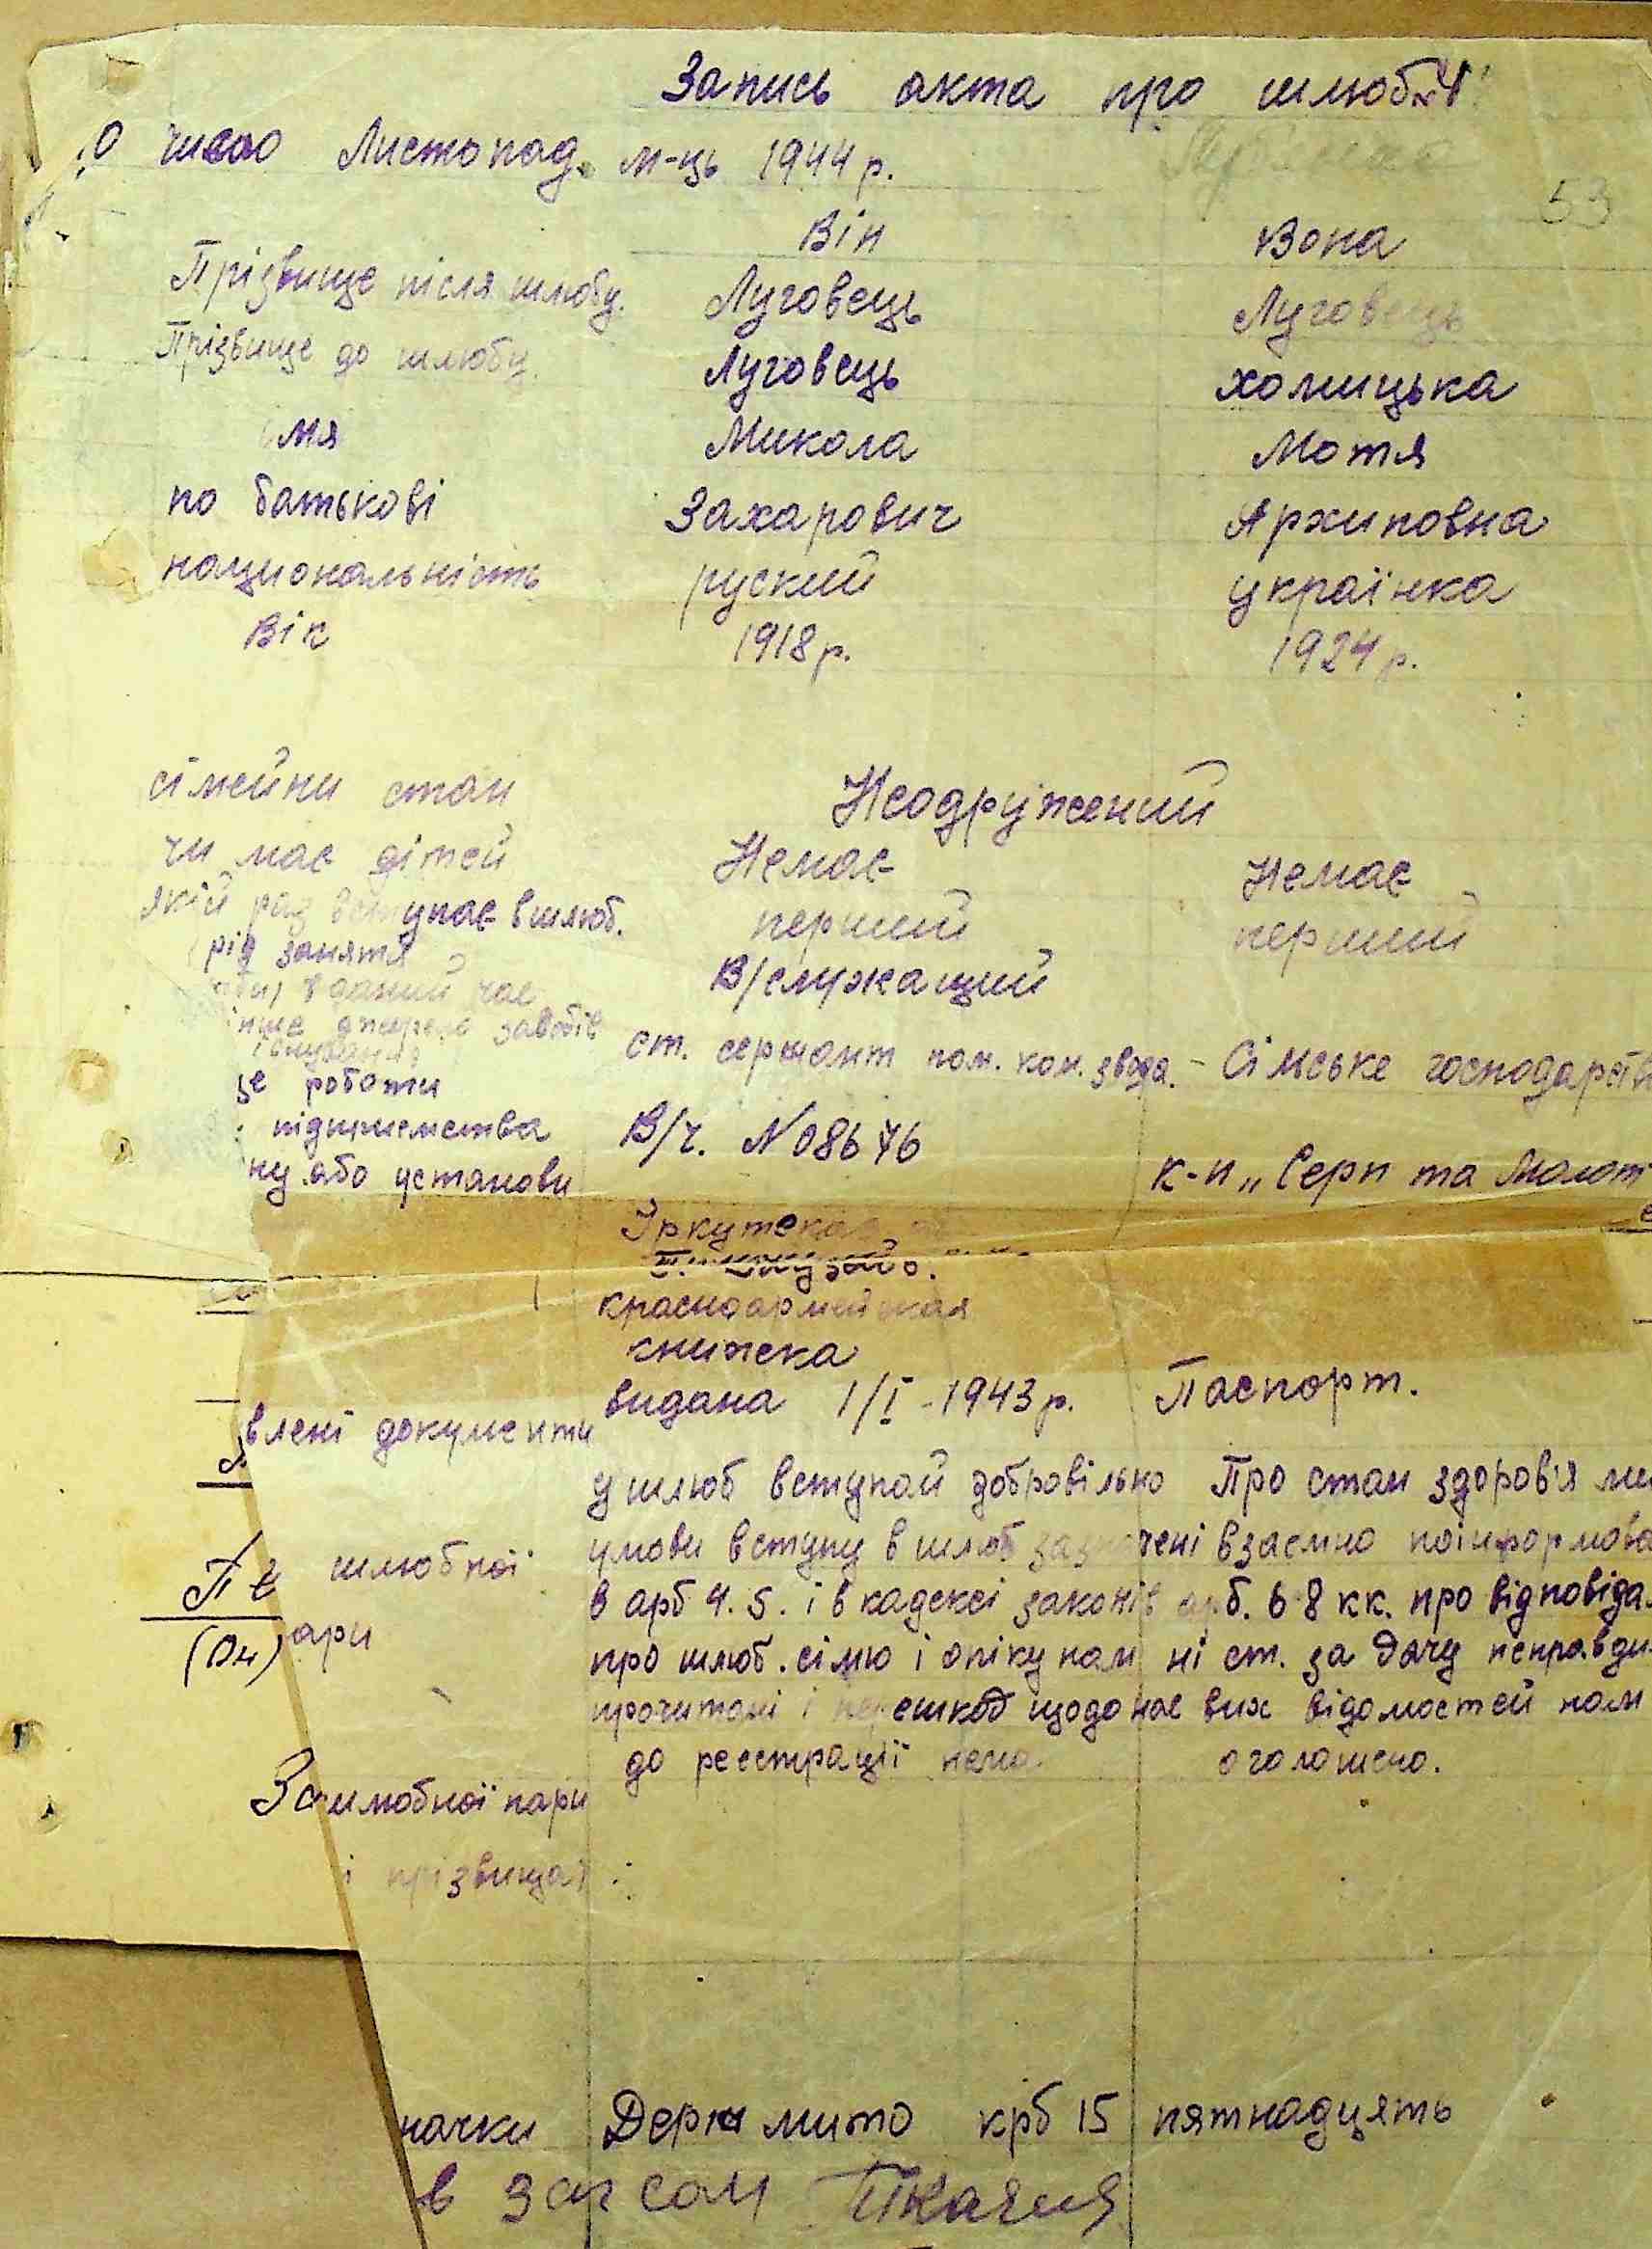 Запись акта про шлюб №4
10 число Листопад. м-ць 1944 р.
53
Він Вона
Прізвище після шлюбу. Луговець Луговець
Прізвище до шлюбу. Луговець Хомицька
імя Микола Мотя
по батькові Захарович Архиповна
национальність руский українка
Вік 1918 р. 1924 р.
сімейни стан Неодружений
чи має дітей Немає Немає
якій раз вступає в шлюб. перший перший
рід занятя В/служащий
в даний час
інше джерело засобів ст. сержант пом. ком. звода. - Сільське господарств
існування
це роботи
підприємства В/ч. №08676
ну або установи к-п „Серп та Молот
Іркутская
красноармейская
книжка
видана 1/I - 1943 р. Паспорт.
влені документи
у шлюб вступай добровільно Про стан здоров'я ми
шлюбної умови вступу в шлюб зазначені взаємно поінформова
Пе
(Он) ари в арб 4. 5. і в кадексі законів арб. 6-8 кк. про відповіда
про шлюб. сімю і опіку нам ні ст. за дачу неправди
прочитані і перешкод щодо нас вих відомостей нам
до реєстрації нема. оголошено.
За шлюбної пари
і прізвища)
начки Держ мито крб 15 пятнадцять
в загсом Ткачия